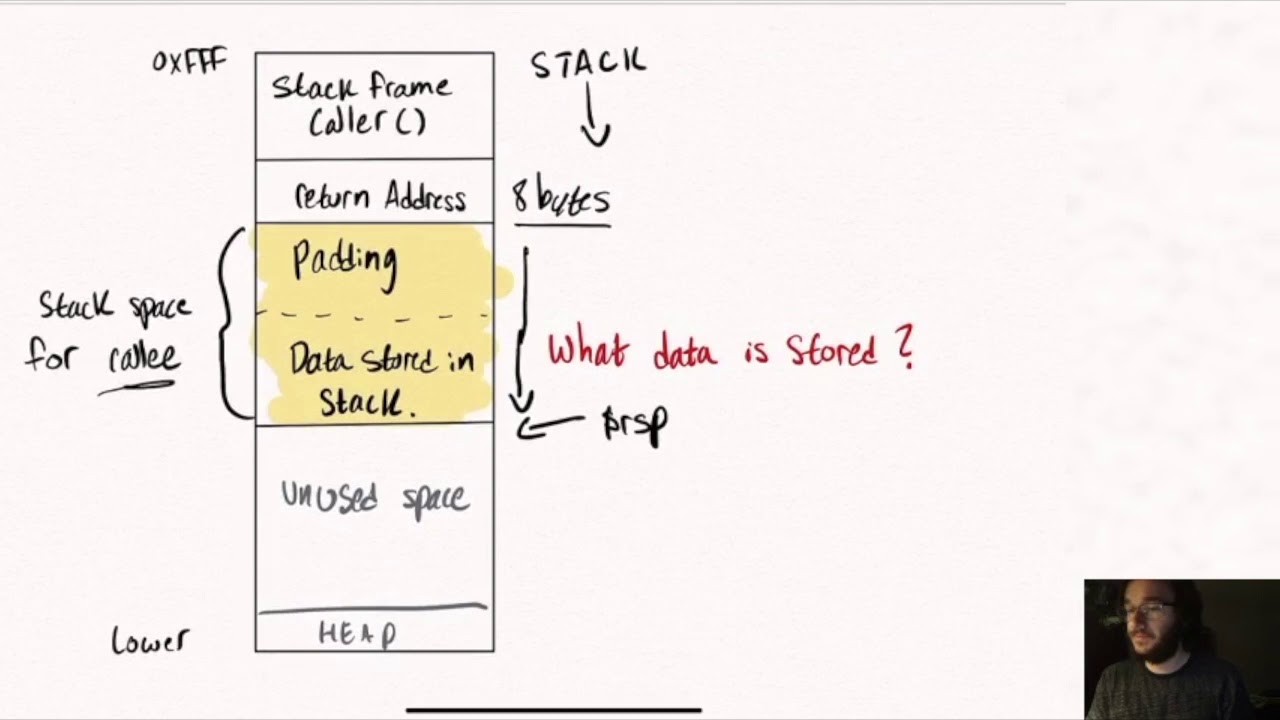 0xFFF
STACK
Stack frame
Caller()
return Address
8 bytes
Padding
Stack space
for callee
Data stored in
Stack.
What data is stored?
$rsp
unused space
Lower
HEAP